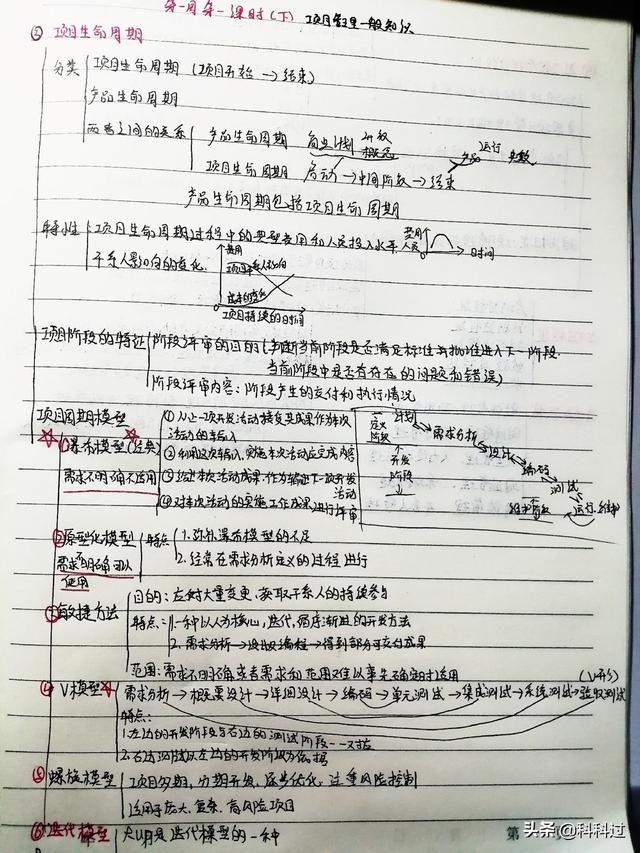 第一周第一课时(下) 项目管理一般知识
② 项目生命周期
分类 项目生命周期 (项目开始 → 结束)
产品生命周期
两者之间的关系 产品生命周期 商业计划 概念 产品 运行 失败
项目生命周期 启动 → 中间阶段 → 结束
产品生命周期包括项目生命周期
特性 1.项目生命周期过程中的典型费用和人员投入水平 费用 人员 0 时间
干系人影响的变化 费用 0 项目持续的时间
项目阶段的特征 阶段评审的目的(判断当前阶段是否满足标准并批准进入下一阶段,
当前阶段中是否有存在的问题和错误)
阶段评审内容:阶段产生的交付和执行情况
项目周期模型
①瀑布模型(经典)
需求不明确不适用
①从上一项开发活动接受其成果作为本次
活动的输入
②利用这次输入,实施本次活动应完成内容
③给出本次活动成果,作为输出下一项开发
活动
④对本次活动的实施工作成果进行评审
定义阶段 计划 需求分析
开发阶段 设计 编码 测试
维护阶段 运行,维护
②原型化模型
需求不明确可以
使用
特点 1.弥补瀑布模型的不足
2.经常在需求分析定义的过程进行
③敏捷方法
目的:应对大量变更,获取干系人的持续参与
特点:1.一种以人为核心,迭代,循序渐进的开发方法
2.需求分析→设计编程→得到部分可交付成果
范围:需求不明确或者需求和范围难以事先确定时适用
(V形)
④ V模型 需求分析→概要设计→详细设计→编码→单元测试→集成测试→系统测试→验收测试
特点:
1.左边的开发阶段与右边的测试阶段一一对应
2.右边测试以左边的开发阶段为依据
⑤ 螺旋模型 项目分期,分期开发,逐步优化,注重风险控制
适用于庞大,复杂,高风险项目
⑥迭代模型 RUP是迭代模型的一种
头条 @科科过